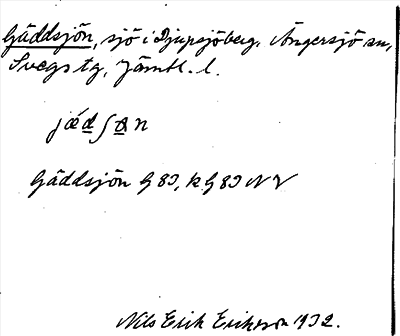 Gäddsjön, sjö i Djupsjöberg. Ängersjö sn,
Svegs tg, Jämtl. l.
Gäddsjön G 83, k G 83 NV
Nils Erik Eriksson 1932.